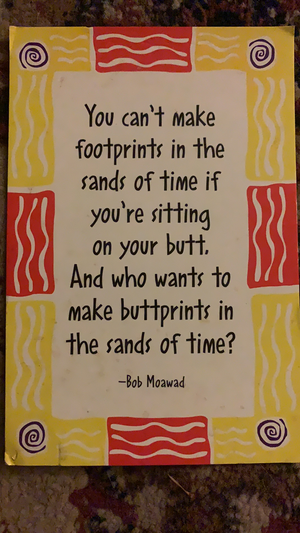 You can't make
footprints in the
sands of time if
you're sitting
on your butt.
And who wants to
make buttprints in
the sands of time?
—Bob Moawad